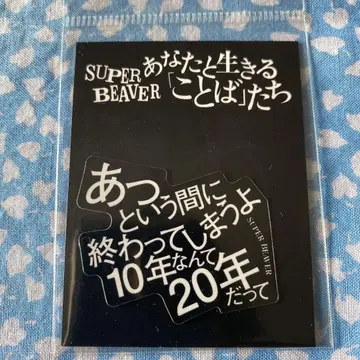 SUPER BEAVER
あなたと生きる
「ことば」たち
あっ
という間に
終わってしまうよ
10年なんて
20年だって
SUPER BEAVER